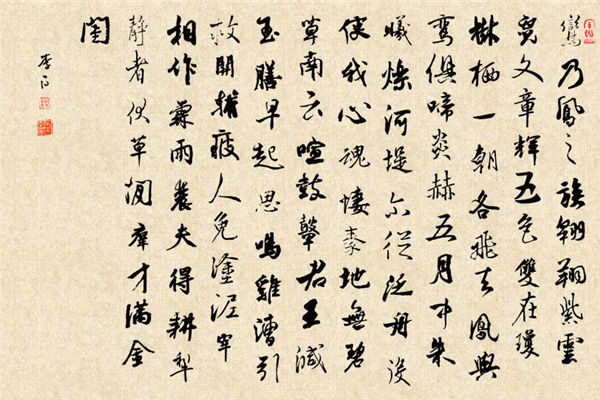 鸞乃鳳之族翱翔紫雲
霓文章輝五色雙在瓊
樹栖一朝各飛去鳳與
鸞俱啼炎赫五月中朱
曦爍河堤尔從泛舟役
使我心魂悽秦地無碧
草南云喧鼓鼙君王減
玉膳早起思鳴雞漕引
救關輔疲人免塗泥宰
相作霖雨農夫得耕犁
靜者伏草間羣才滿金
閨
李白